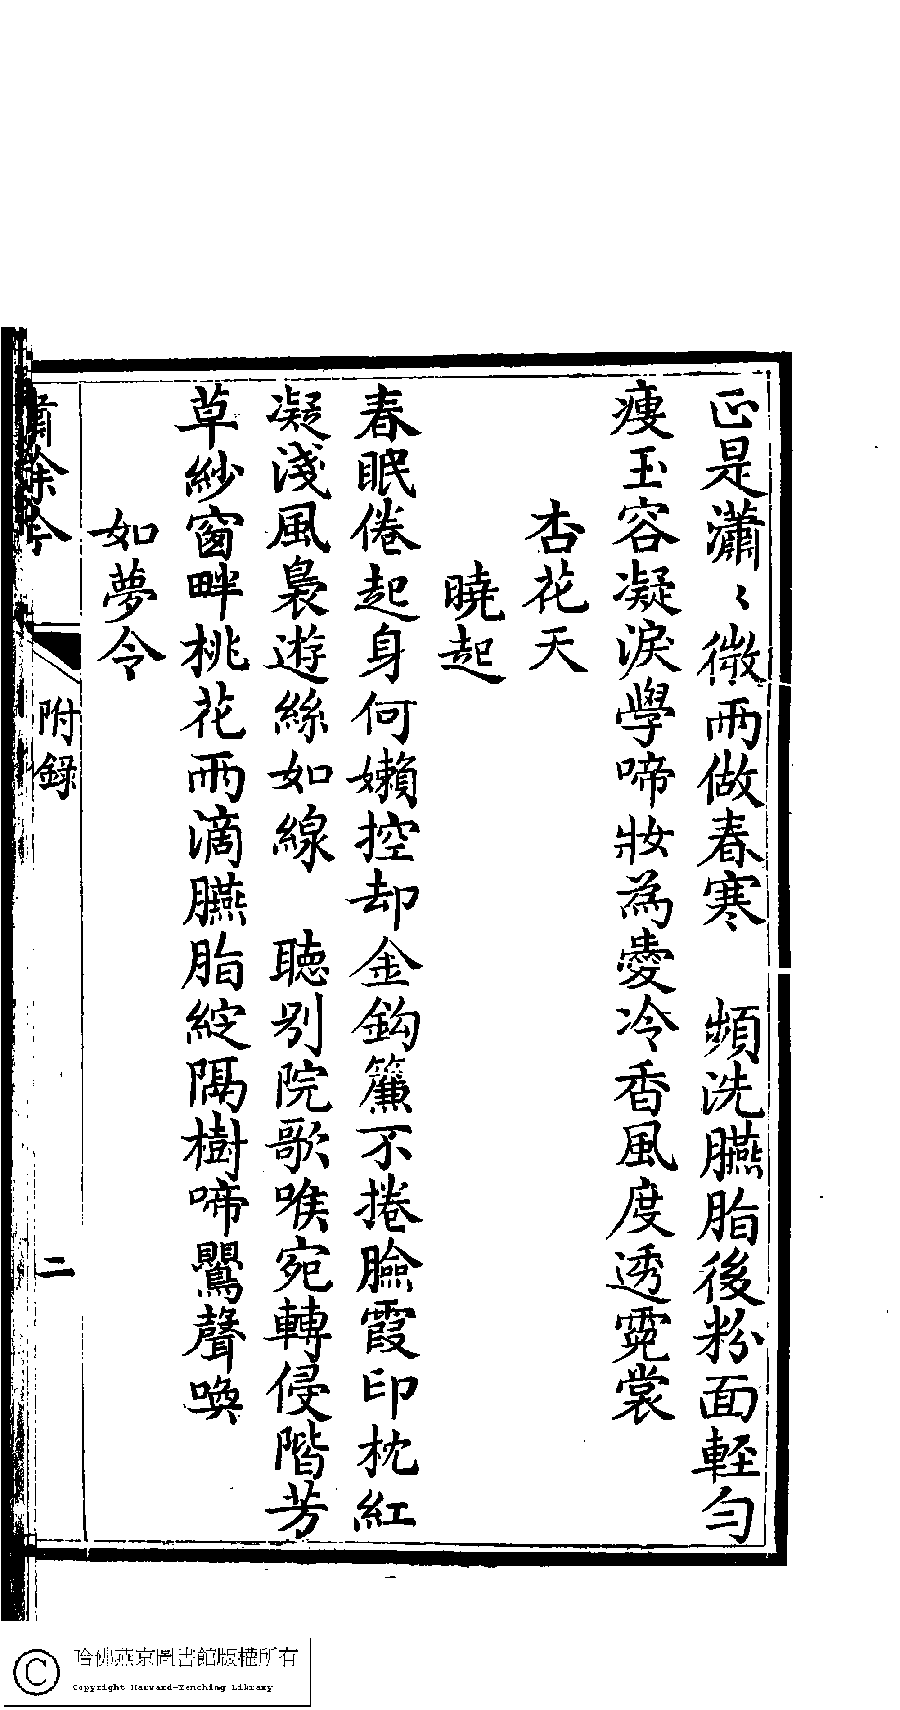 正是瀟〻微雨做春寒　頻洗臙脂後粉面輕勻
瘦玉容凝淚學啼妝為愛冷香風度透霓裳
杏花天
曉起
春眠倦起身何嬾控却金鈎簾不捲臉霞印枕紅
凝淺風裊遊絲如線　聽别院歌喉宛轉侵階芳
草紗窗畔桃花雨滴臙脂綻隔樹啼鸎聲喚
如夢令
附錄
二
哈佛燕京圖書館版權所有
Copyright Harvard-Yenching Library